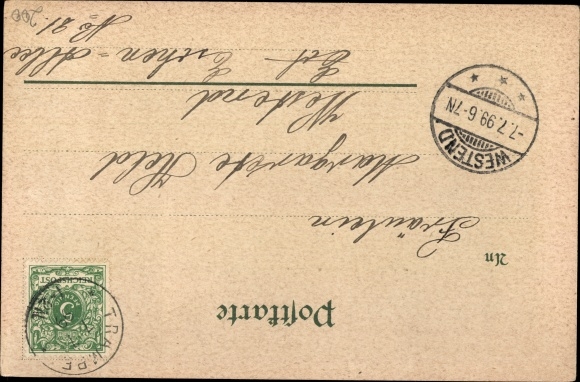 Postkarte
An
Fräulein
Margarete Held
Westend
Eschen-Allee
No 21.
REICHSPOST
5
WESTEND
-7.7.99.6-7N.
200